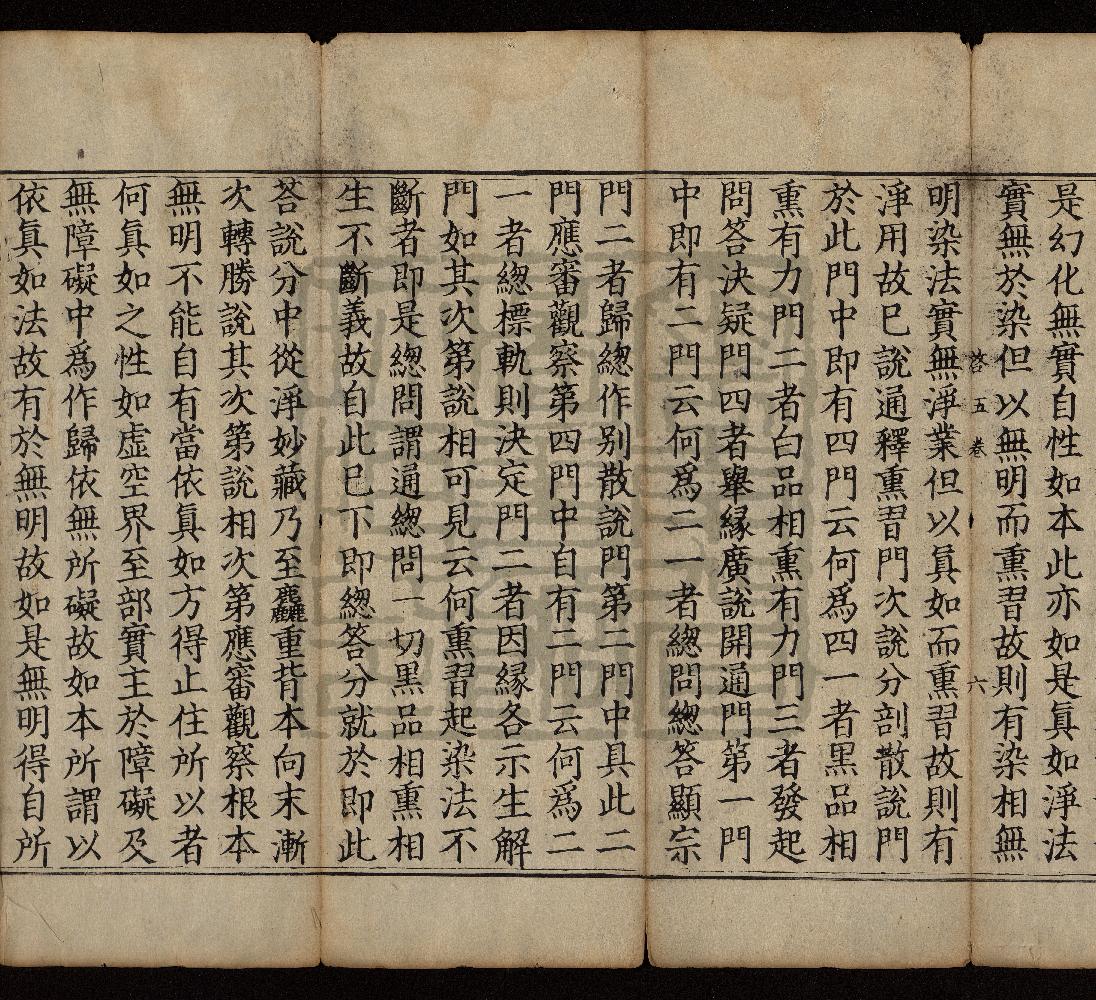 是幻化無實自性如本此亦如是眞如淨法
實無於染但以無明而熏習故則有染相無
啓 五 卷 六
明染法實無淨業但以眞如而熏習故則有
淨用故已說通釋熏習門次說分剖散說門
於此門中即有四門云何爲四一者黑品相
熏有力門二者白品相熏有力門三者發起
問答決疑門四者舉緣廣說開通門第一門
中即有二門云何爲二一者總問總答顯宗
門二者歸總作别散說門第二門中具此二
門應審觀察第四門中自有二門云何爲二
一者總標軌則決定門二者因緣各示生解
門如其次第說相可見云何熏習起染法不
斷者即是總問謂通總問一切黑品相熏相
生不斷義故自此已下即總答分就於即此
荅說分中從淨妙藏乃至麤重背本向末漸
次轉勝說其次第說相次第應審觀察根本
無明不能自有當依眞如方得止住所以者
何眞如之性如虛空界至部實主於障礙及
無障礙中爲作歸依無所礙故如本所謂以
依眞如法故有於無明故如是無明得自所